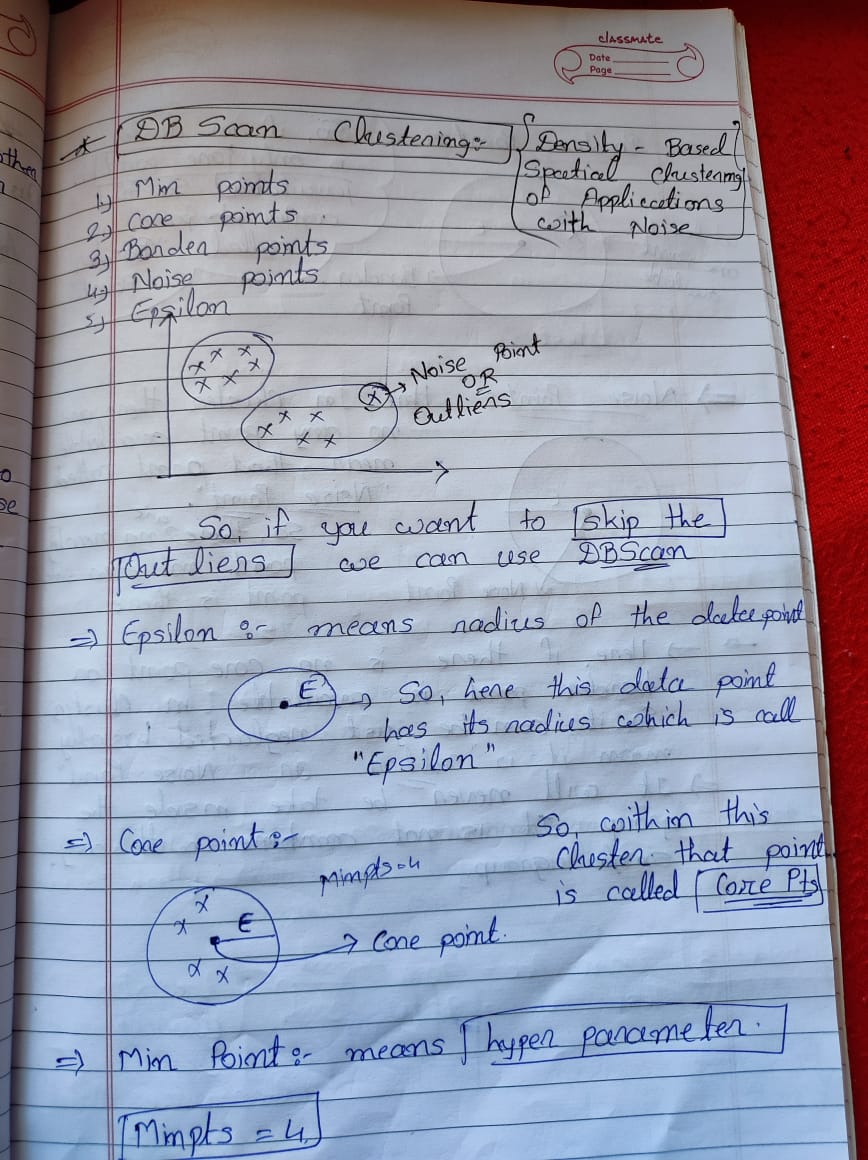 classmate
Date
Page
* DB Scan Clustering:-
Density - Based
Spatial Clustering
of Applications
with Noise
1) Min points
2) Core points.
3) Border points
4) Noise points
5) Epsilon
Noise Point
OR
Outliers
So, if you want to skip the
Out liers we can use DBScan
=> Epsilon :- means radius of the data point
E
So, here this data point
has its radius which is call
"Epsilon"
=> Core point :-
Minpts=4
So, within this
Cluster that point
is called Core Pts
x
x
E
x x
Core point.
=> Min Point :- means hyper parameter.
Minpts = 4